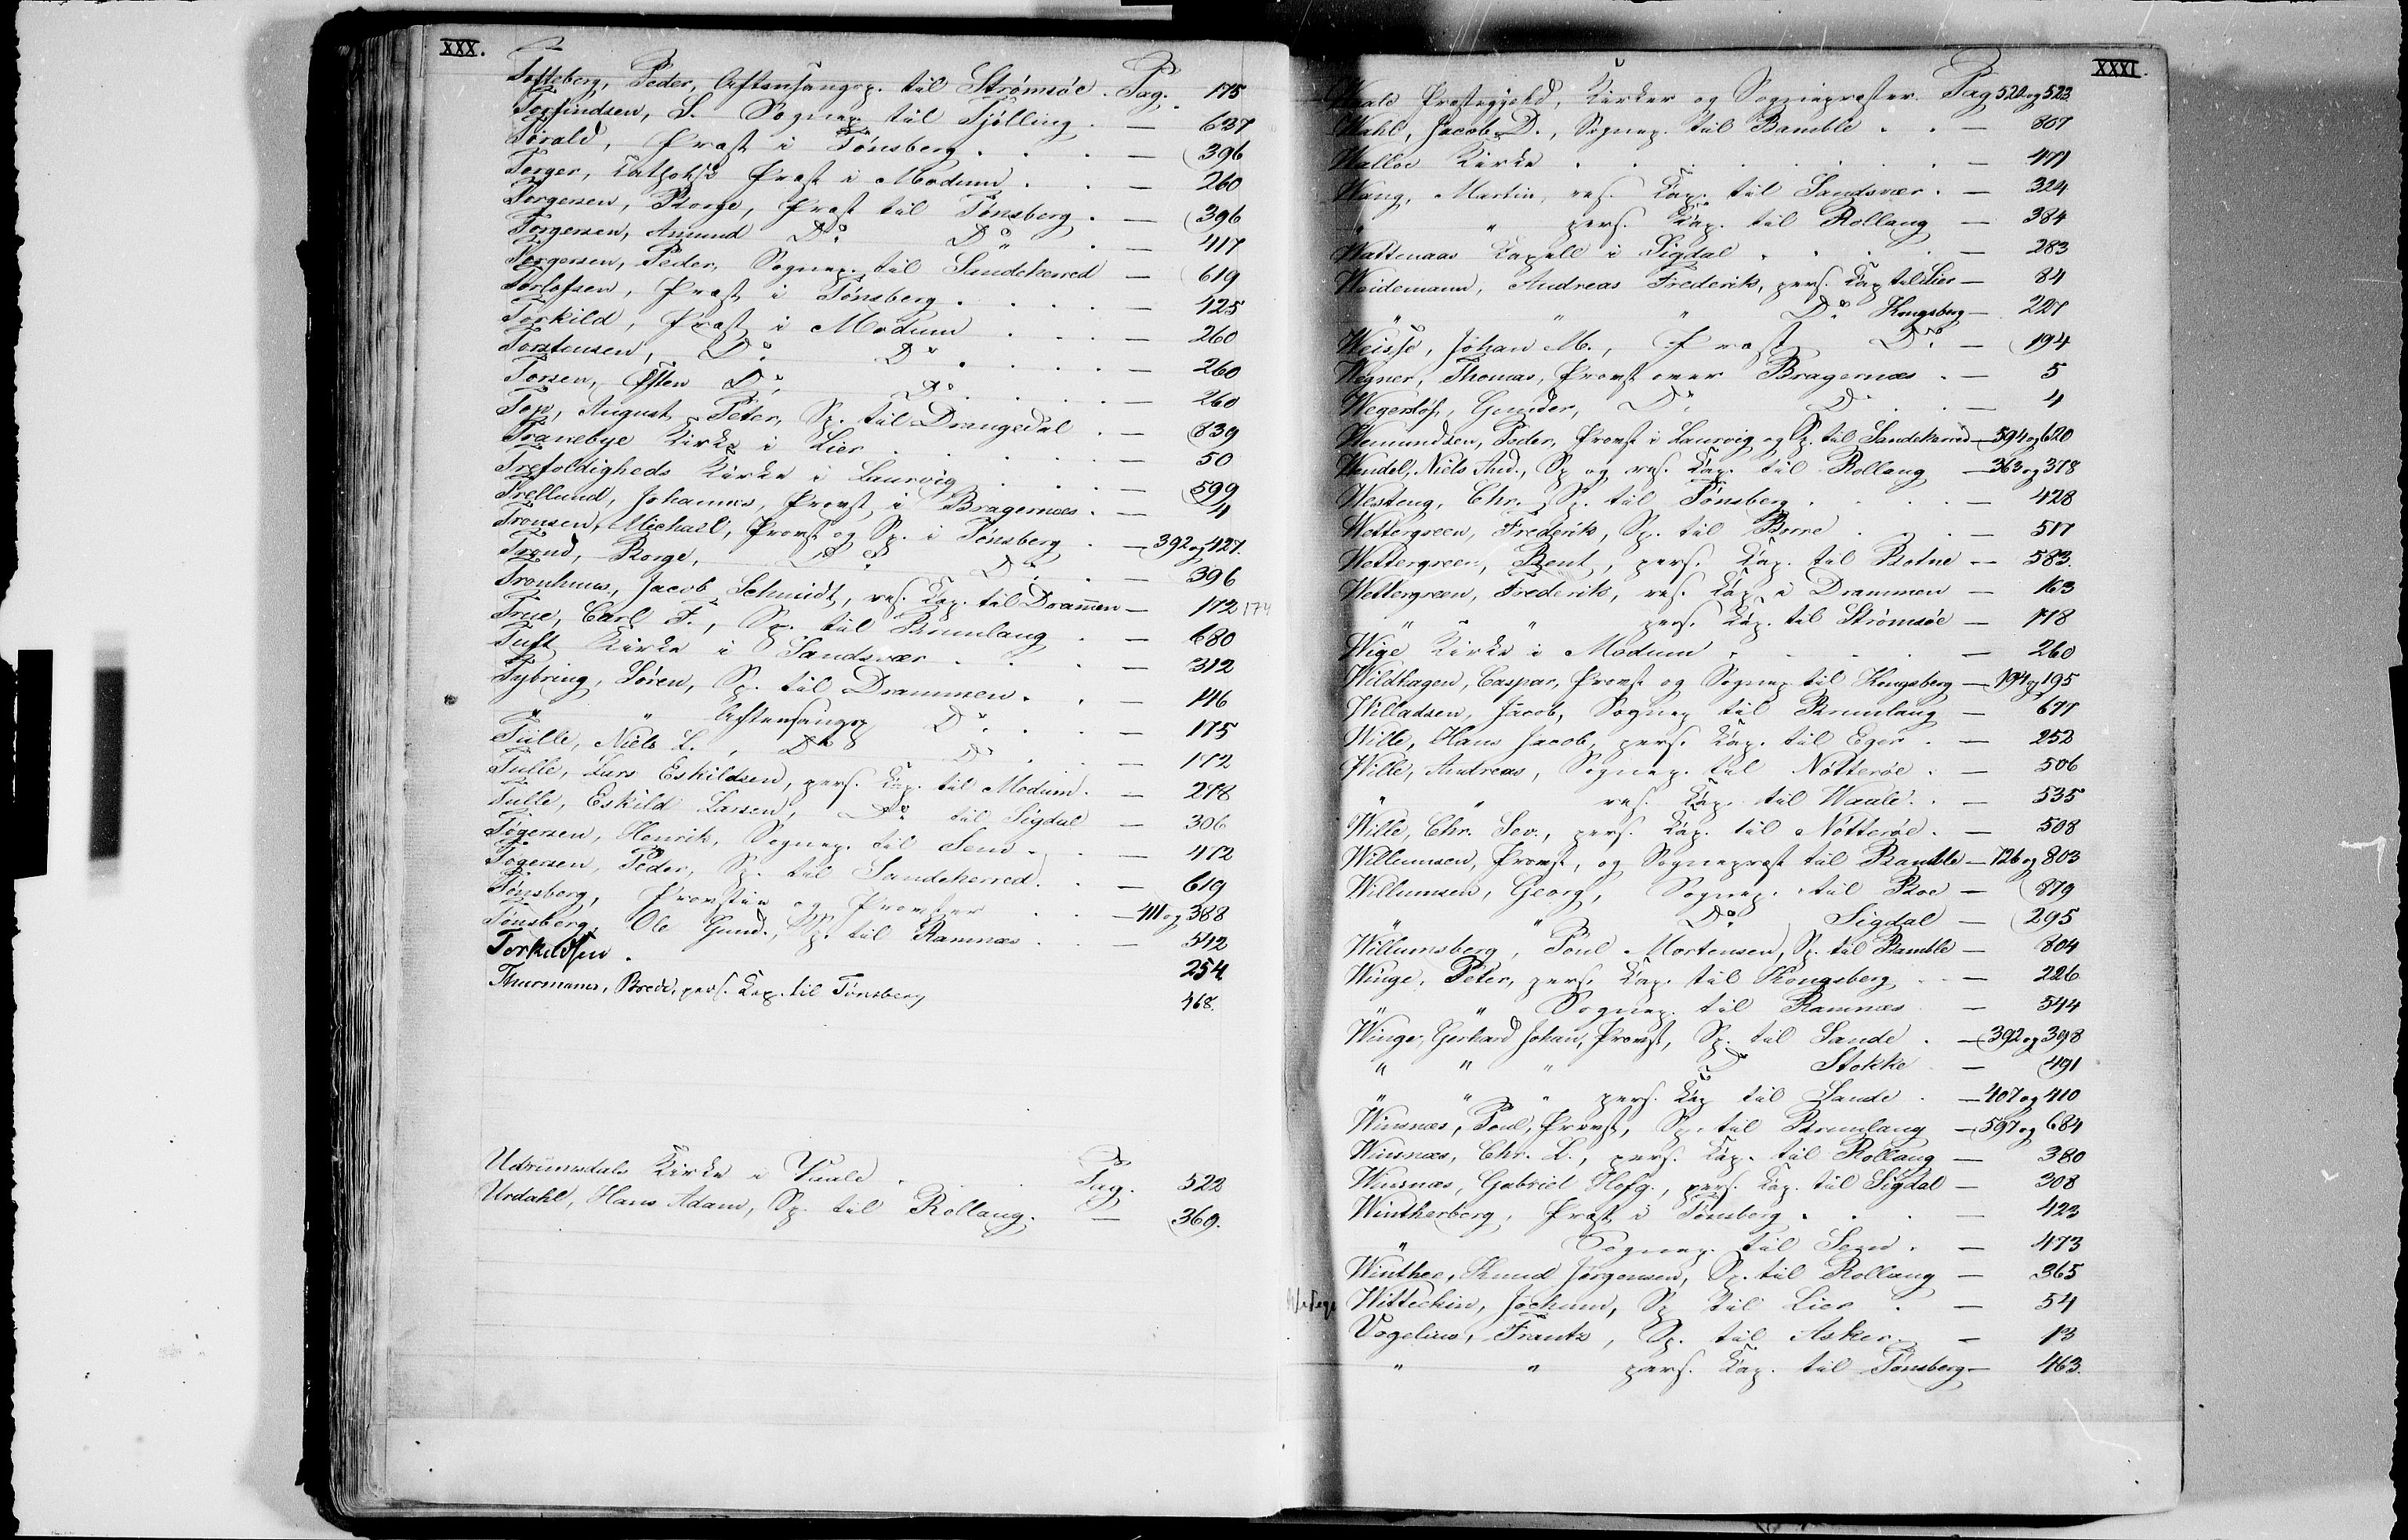 XXX.
Tofteberg, Peder, Aftensangsp. til Strømsöe. Pag. 175
Torfindsen, S. Sognep. til Tjölling. — 637
Torald, Præst i Tönsberg. . . . — 396
Torger, Katholsk Præst i Modum. . — 260
Torgersen, Borge, Præst til Tönsberg. — 396
Torgersen, Amund Do. Do. — 417
Torgersen, Peder, Sognep. til Sandeherred — 619
Torlofsen, Præst i Tönsberg . . . — 425
Torkild, Præst i Modum . . . — 260
Torstensen, Do. Do. . . . — 260
Torsen, Östen Do. Do. . . . — 260
Top, August Peter, Sp. til Drangedal . — 839
Tranebye Kirke i Lier . . . . — 50
Trefoldigheds Kirke i Laurvig . . . — 599
Trellund, Johannes, Provst i Bragernæs. — 4
Tronsen, Michael, Provst og Sp. i Tönsberg . — 392 og 427.
Trond, Borge, Do. Do. . . — 396
Tronhuus, Jacob Schmidt, res. Kap. til Drammen — 172 174
True, Carl F., Sp. til Brunlaug . — 680
Tuft Kirke i Sandsvær . . . — 312
Tybring, Sören, Sp. til Drammen. . — 146
" " Aftensangsp Do. . . — 175
Tulle, Niels L., Do. Do. . . — 172
Tulle, Lars Eskildsen, pers. Kap. til Modum. — 278
Tulle, Eskild Larsen, Do. til Sigdal — 306
Tögersen, Henrik, Sognep. til Sem . . — 472
Tögersen, Peder, Sp. til Sandeherred. . — 619
Tönsberg, Provstie og Provster . . — 411 og 388
Tönsberg, Ole Gund., Sp. til Ramnæs . . — 542
Torkildsen . 254
Thurmann, Brede, pers. Kap. til Tönsberg 468.
Pag. 522
Urdahl, Hans Adam, Sp. til Rollaug. — 369.
XXXI.
Waale Præstegjeld, Kirker og Sognepræster. Pag 522 og 523
Wahl, Jacob D., Sognep. til Bamble . . — 807
Walloe Kirke . . . . . . — 471
Wang, Martin, res. Kap. til Sandsvær. — 324
" " pers. Kap. til Rollaug — 384
Wattenaas Kapell i Sigdal . . . — 283
Weidemann, Andreas Frederik, pers. Kap til Lier — 84
" " " Do. Kongsberg — 227
Weisse, Johan M., Præst Do. — 194
Wegner, Thomas, Provst over Bragernæs . — 5
Wegersløf, Gunder, Do. Do. . . — 4
Wemundsen, Peder, Provst i Laurvig og Sp. til Sandeherred — 594 og 620
Wendel, Niels And., Sp og res. Kap. til Rollaug — 363 og 378
Westeng, Chr. Sp. til Tönsberg . . . — 428
Wettergreen, Frederik, Sp. til Borre . . . — 517
Wettergreen, Bent, pers. Kap. til Botne — 583.
Wettergreen, Frederik, res. Kap i Drammen — 163
" " " pers. Kap. til Strömsöe — 178
Wige Kirke i Modum . . . . — 260
Wildhagen, Caspar, Provst og Sognep til Kongsberg — 194 og 195
Willadsen, Jacob, Sognep til Brunlaug — 677
Wille, Hans Jacob, pers. Kap. til Eger . — 252
Wille, Andreas, Sognep. til Nötteröe . — 506
" " res. Kap. til Waale. . — 535
Wille, Chr. Sev., pers. Kap. til Nötteröe. — 508
Willumsen, Provst, og Sognepræst til Bamble — 726 og 803
Willumsen, Georg, Sognep. til Boe — 879
" " Do. Sigdal — 295
Willumsberg, Poul Mortensen, Sp. til Bamble — 804
Winge, Peter, pers. Kap. til Kongsberg . — 226
" " Sognep. til Ramnæs — 544
Winge, Gerhard Johan, Provst, Sp. til Sande . — 392 og 398
" " " Do Stokke — 491
" " " pers. Kap til Sande . — 407 og 410
Winsnæs, Poul, Provst, Sp. til Brunlaug — 597 og 684
Winsnæs, Chr. B., pers. Kap. til Rollaug — 380
Winsnæs, Gabriel Hofg., pers. Kap. til Sigdal — 308
Wintherberg, Præst i Tönsberg . . . — 423
" Sognep. til Sem . — 473
Winther, Knud Jørgensen, Sp. til Rollaug — 365
Wittechin, Jochum, Sp til Lier . — 54
Vogelius, Frantz, Sp. til Asker. — 13
" " pers. Kap. til Tönsberg — 463.